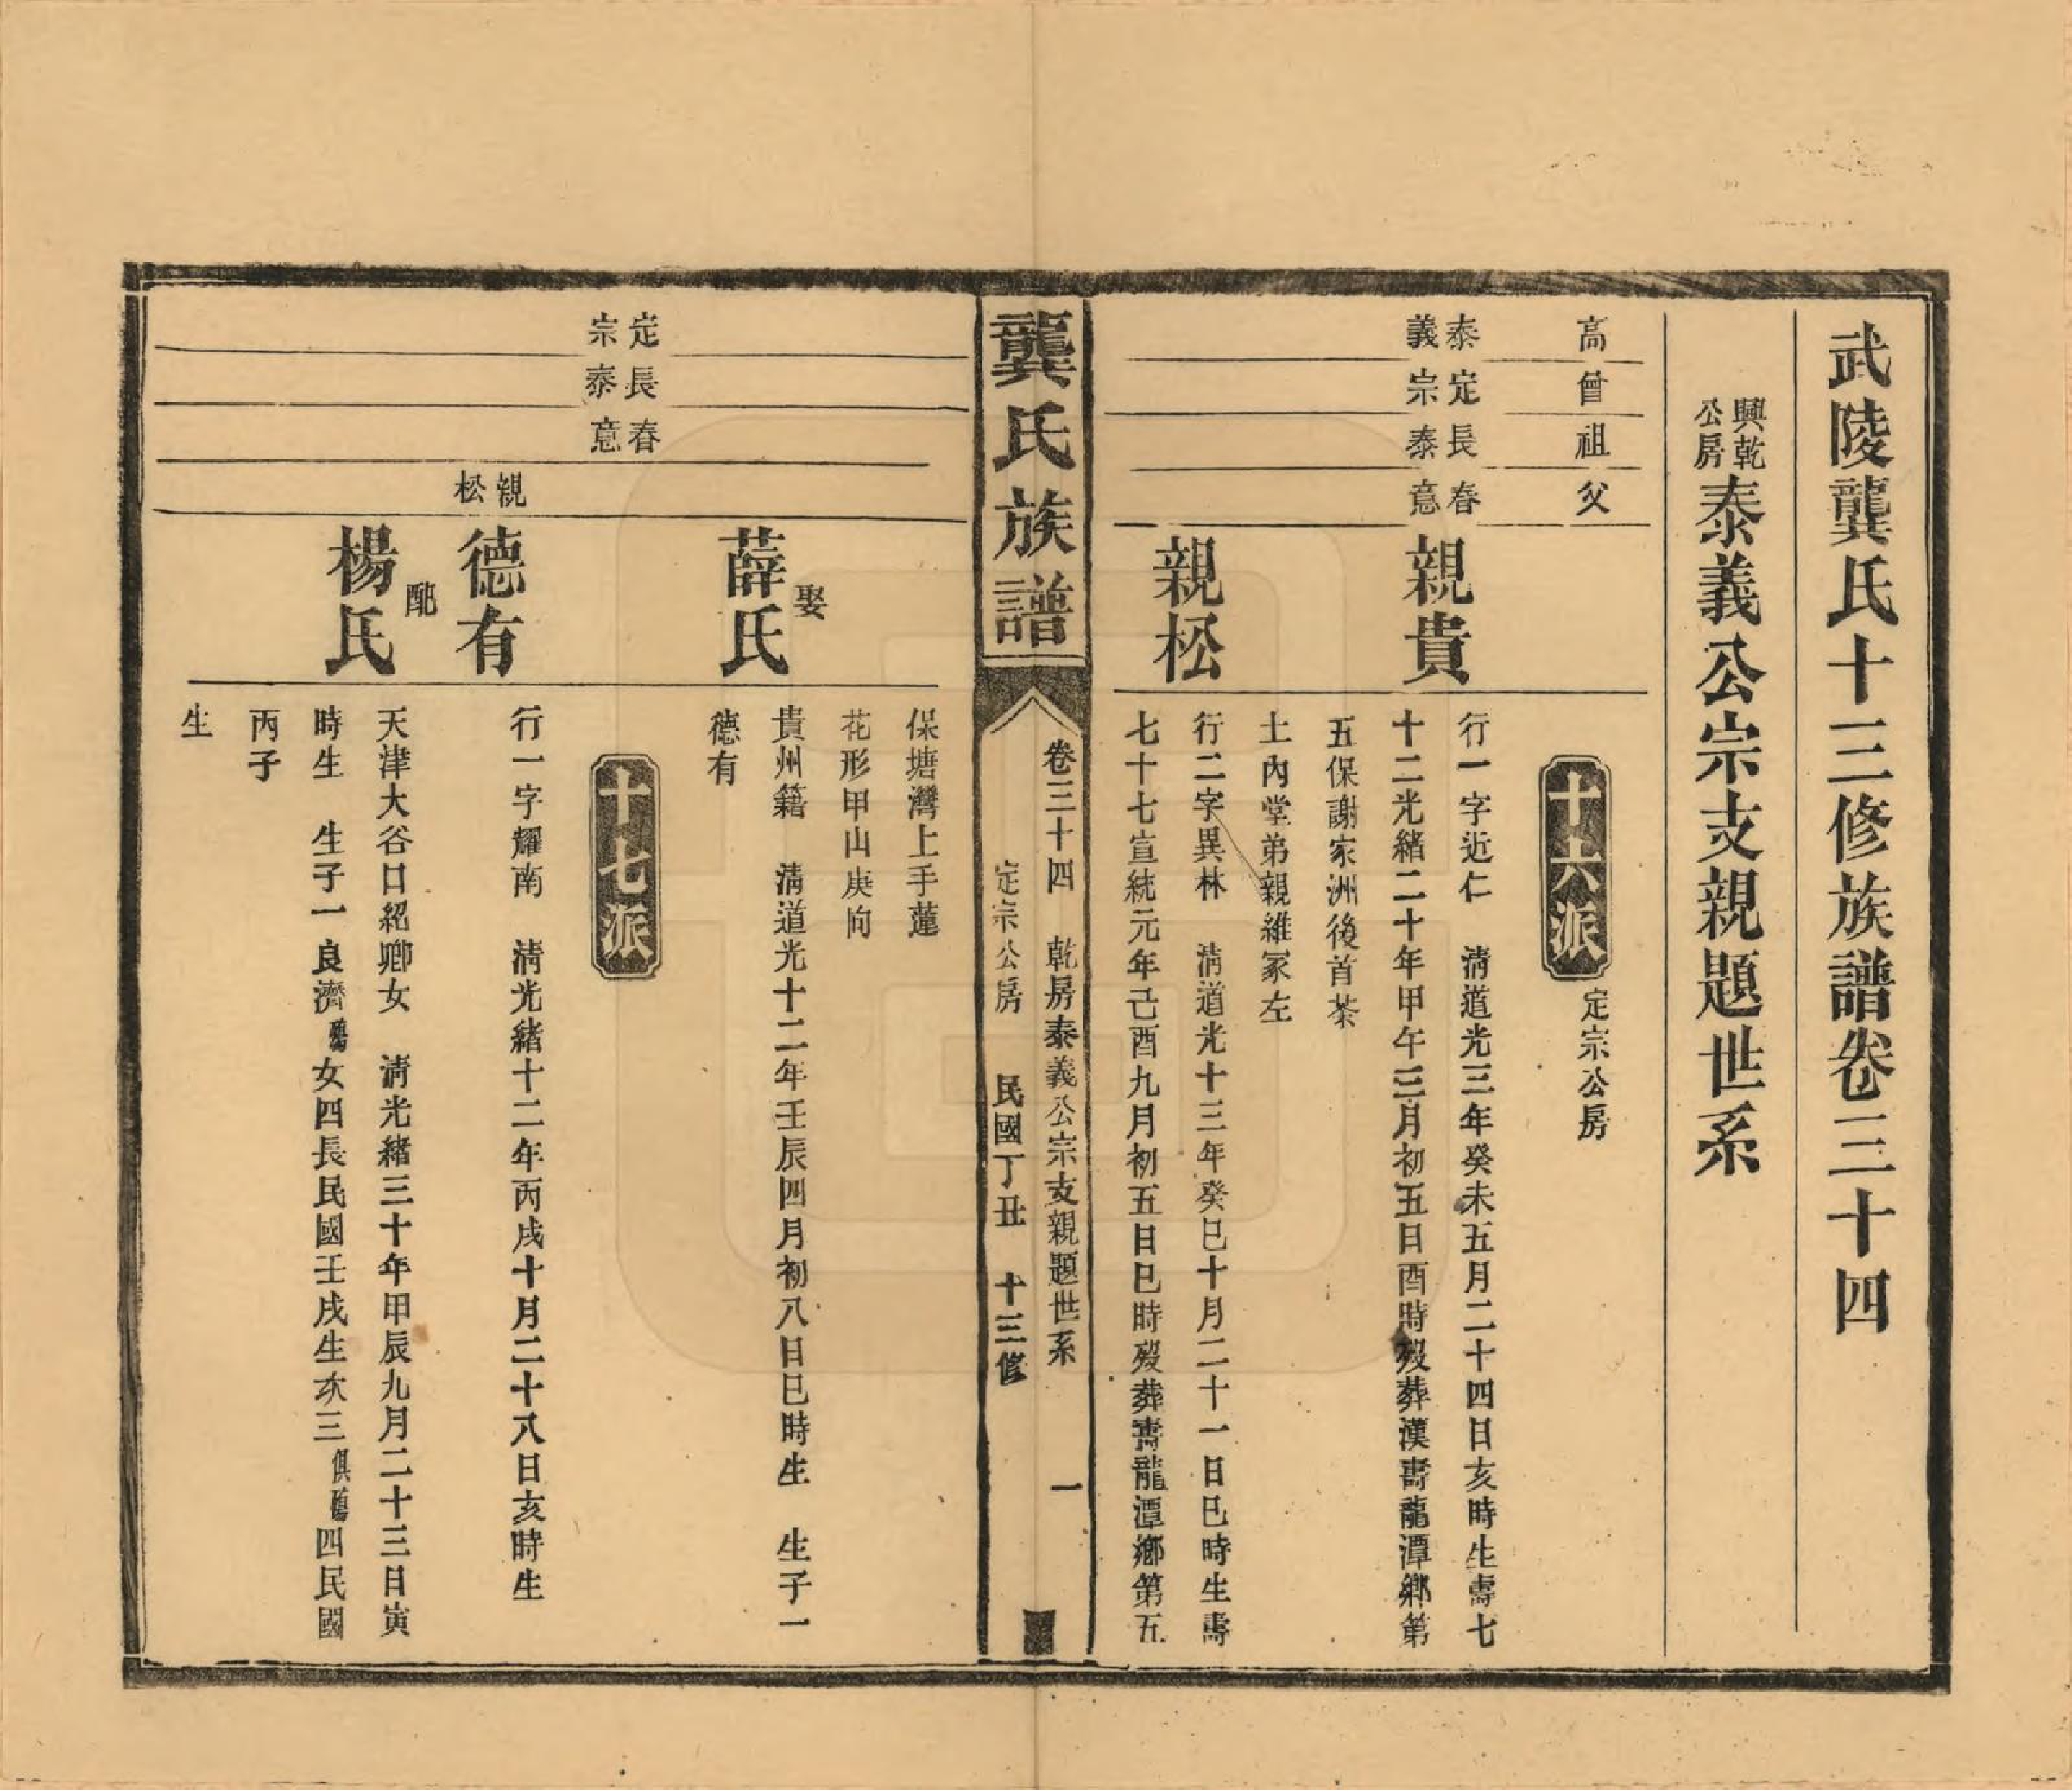 武陵龔氏十三修族譜卷三十四
興乾公房泰義公宗支親題世系
高 曾 祖 父
十六派 定宗公房
泰義
定宗
長泰
春意
親貴
行一字近仁 清道光三年癸未五月二十四日亥時生壽七
十二光緒二十年甲午三月初五日酉時歿葬漢壽龍潭鄉第
五保謝家洲後首茶
土內堂弟親維冢左
親松
行二字異林 清道光十三年癸巳十月二十一日巳時生壽
七十七宣統元年己酉九月初五日巳時歿葬壽龍潭鄉第五
龔氏族譜
卷三十四 乾房泰義公宗支親題世系 一
定宗公房 民國丁丑 十三修
保塘灣上手蓮
花形甲山庚向
娶
薛氏
貴州籍 清道光十二年壬辰四月初八日巳時生 生子一
德有
定宗
長泰
春意
十七派
親松
德有
行一字耀南 清光緒十二年丙戌十月二十八日亥時生
配
楊氏
天津大谷口紹卿女 清光緒三十年甲辰九月二十三日寅
時生 生子一良濟 女四長民國壬戌生次三俱 四民國
丙子
生